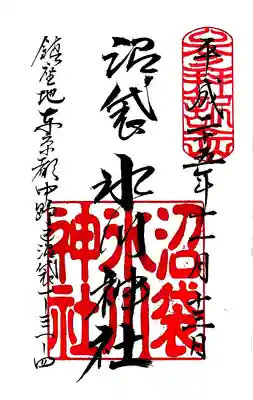 平成二十五年十一月十三日
沼袋 氷川神社
沼袋
氷川
神社
鎮座地 東京都中野区沼袋一-三一-四